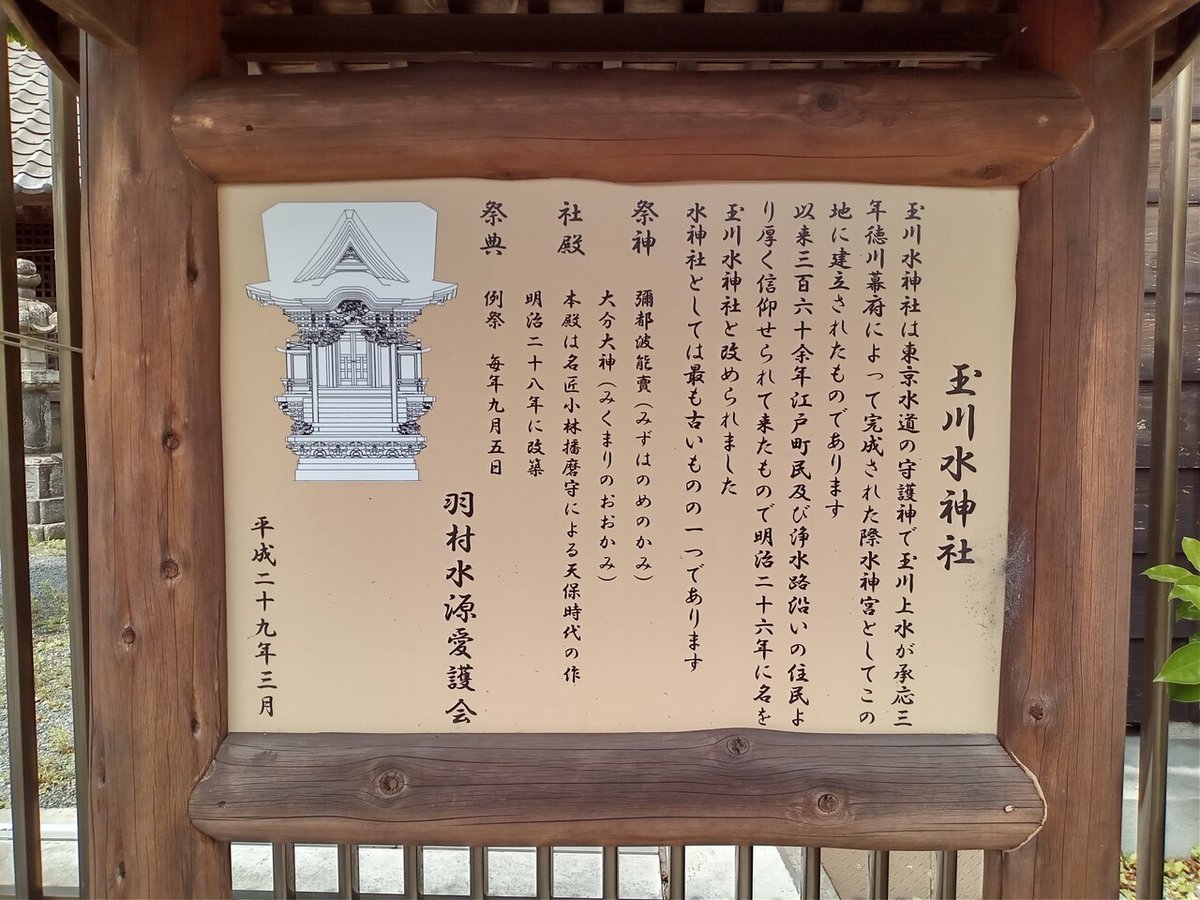 玉川水神社
玉川水神社は東京水道の守護神で玉川上水が承応三
年徳川幕府によって完成された際水神宮としてこの
地に建立されたものであります
以来三百六十余年江戸町民及び浄水路沿いの住民よ
り厚く信仰せられて来たもので明治二十六年に名を
玉川水神社と改められました
水神社としては最も古いものの一つであります
祭神 彌都波能賣(みずはのめのかみ)
大分大神(みくまりのおおかみ)
社殿 本殿は名匠小林播磨守による天保時代の作
明治二十八年に改築
祭典 例祭 毎年九月五日
羽村水源愛護会
平成二十九年三月